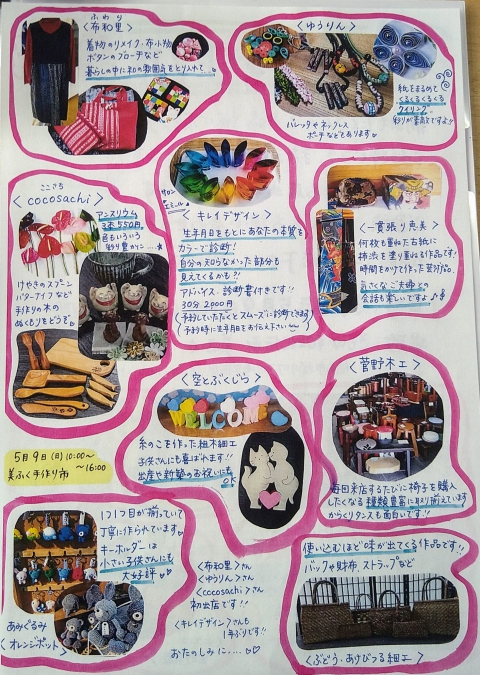 ふわり
〈布和里〉
着物のリメイク・布小物
ボタンのブローチなど
暮らしの中に和の雰囲気をとり入れて
〈ゆうりん〉
紙をまるめて
くるくるくるくる
クイリング
彩りが素敵です!!
バレッタやネックレス
ポーチなどもあります♡
ここさち
〈cocosachi〉
アンスリウム
3本550円
色もいろいろ
彩り豊か…★
けやきのスプーン
バターナイフなど
手作りの木の
ぬくもりをどうぞ
サロン
〈キレイデザイン〉
生年月日をもとにあなたの本質を
カラーで診断!
自分の知らなかった部分も
見えてくるかも?!
アドバイス、診断書付きです!!
30分2000円
(予約していただくとスムーズに診断できます)
(予約時に生年月日をお伝え下さい)
〈一貫張り恵美〉
何枚も重ねた古紙に
柿渋を塗り重ねる作品です!
時間をかけて作った芸術品。
気さくなご夫婦との
会話も楽しいですよ♪
〈空とぶくじら〉
WELCOME
糸のこを使った組木細工
子供さんにも喜ばれます!!
出産や新築のお祝いにも
OK
〈菅野木工〉
毎回来店するたびに椅子を購入
したくなる種類豊富に取り揃えています
からくりタンスも面白いです!!
5月9日(日)10:00〜
〜16:00
美ふく手作り市
1つ1つ目が揃っていて
丁寧に作られています。
キーホルダーは
小さい子供さんにも
大好評♡♡
あみぐるみ
〈オレンジポット〉
〈布和里〉さん
〈ゆうりん〉さん
〈cocosachi〉さん
初出店です!!
〈キレイデザイン〉さんも
1年ぶりです!!
おたのしみに……♡♡
使い込むほど味が出てくる作品です!!
バッグや財布、ストラップなど
〈ぶどう、あけびつる細工〉